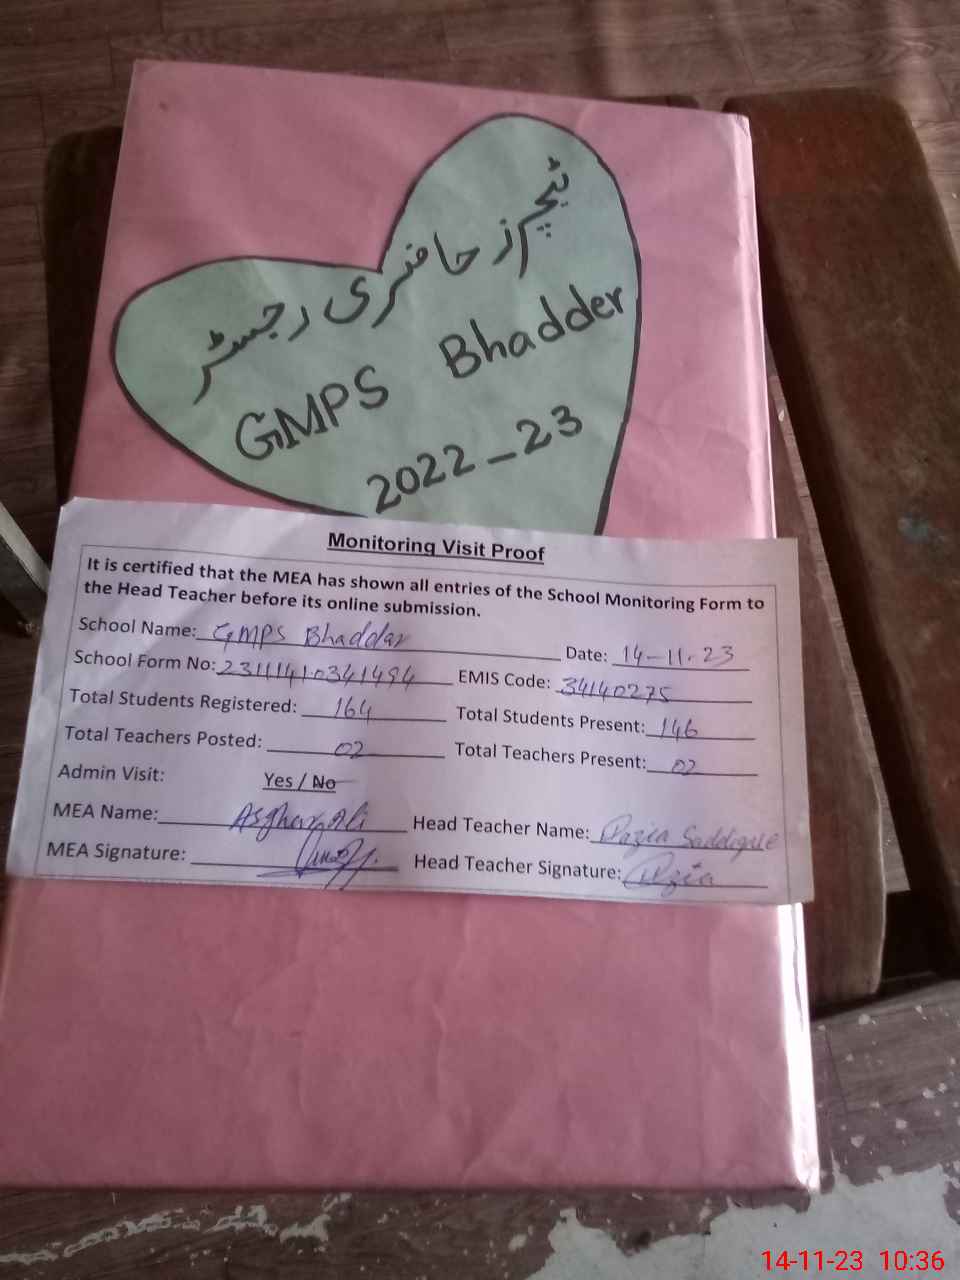 ٹیچرز حاضری رجسٹر
GMPS Bhadder
2022_23
Monitoring Visit Proof
It is certified that the MEA has shown all entries of the School Monitoring Form to
the Head Teacher before its online submission.
School Name: GMPS Bhaddar Date: 14-11-23
School Form No: 23111410341494 EMIS Code: 34140275
Total Students Registered: 164 Total Students Present: 146
Total Teachers Posted: 02 Total Teachers Present: 02
Admin Visit: Yes / No
MEA Name: Asghar Ali Head Teacher Name: Razia Saddique
MEA Signature: Head Teacher Signature: Razia
14-11-23 10:36